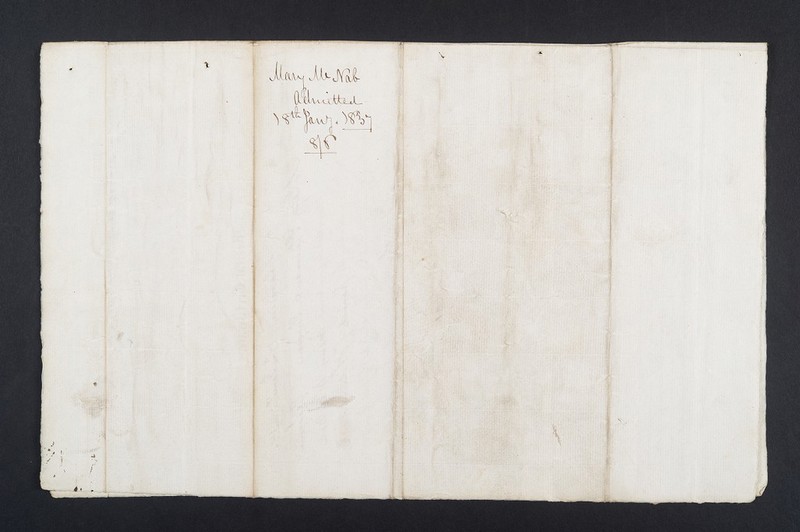 Mary Mc Nab
admitted
18th Jany. 1837
8/6